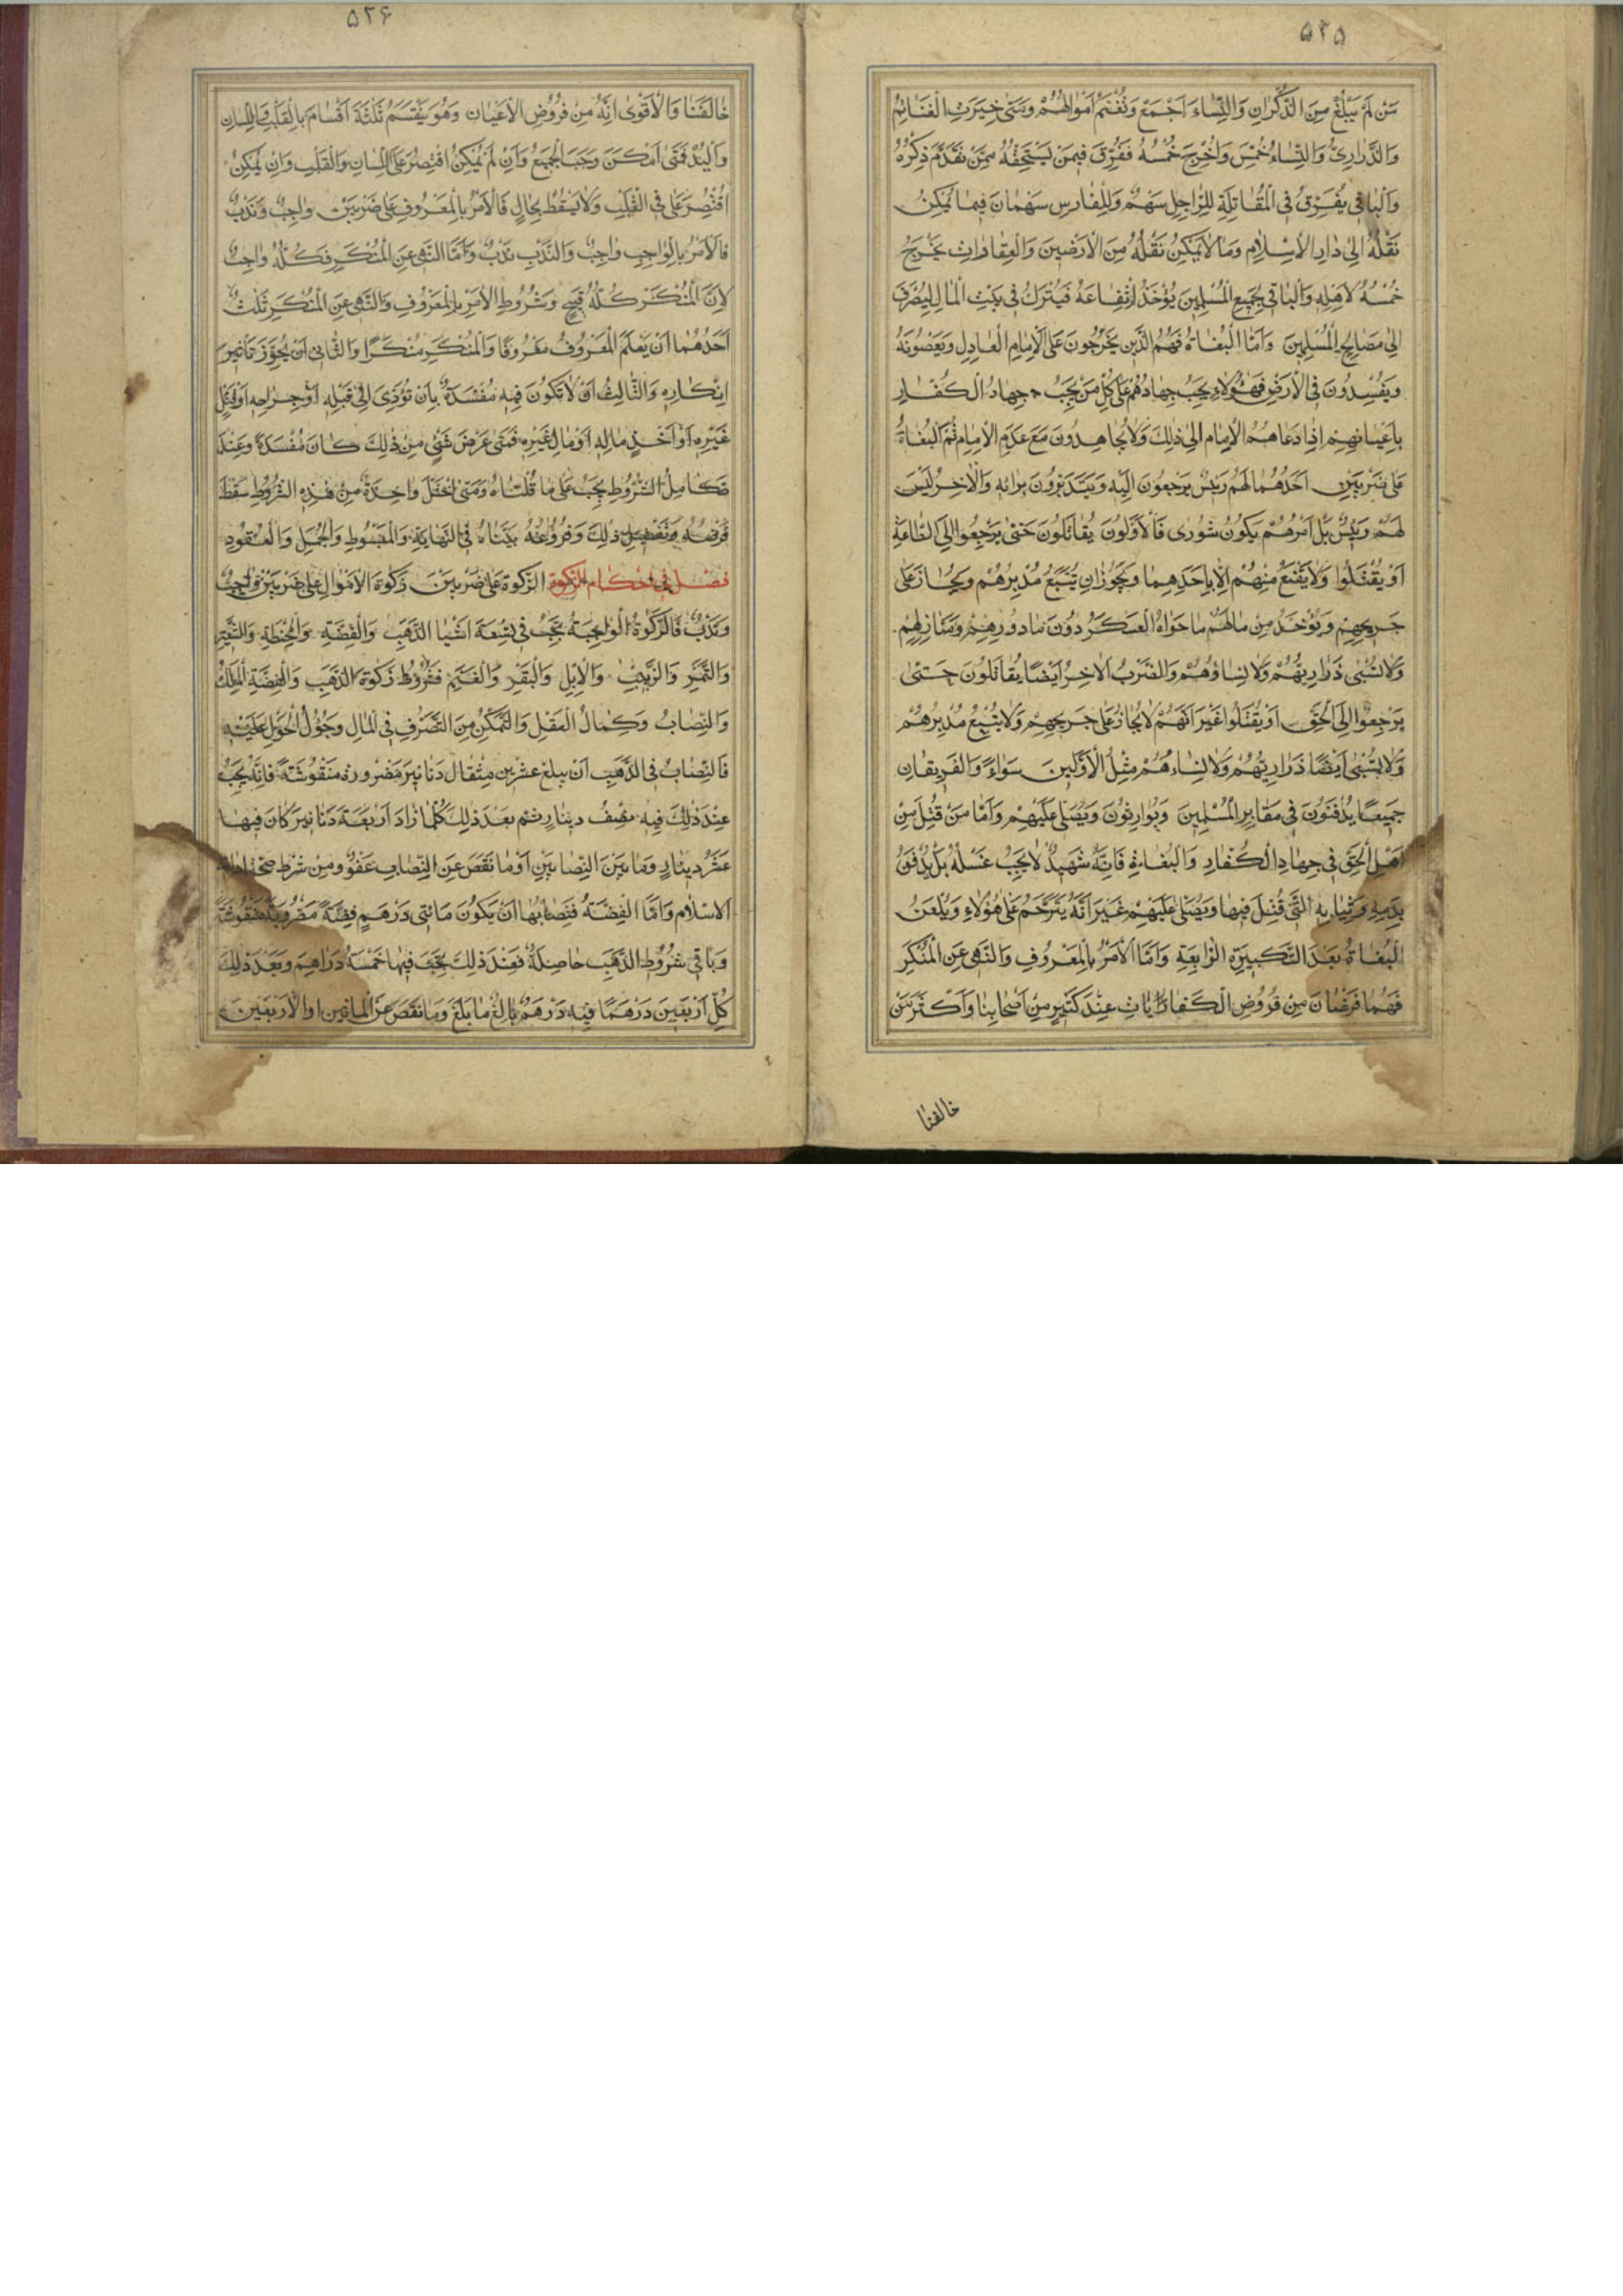 ۵۲۵
مَنْ لَمْ يَبْلُغْ مِنَ الذُّكْرانِ وَالنِّساءَ اَجْمَعْ وَتُغْنَمُ اَمْوالُهُمْ وَمَتى حِيزَتِ الْغَنائِمُ
وَالذَّرارِيُّ وَالنِّساءُ خُمِسَ وَاُخْرِجَ خُمْسُهُ فَفُرِّقَ فِيمَنْ يَسْتَحِقُّهُ مِمَّنْ تَقَدَّمَ ذِكْرُهُ
وَالْباقى يُفَرَّقُ فِى الْمُقاتِلَةِ لِلرّاجِلِ سَهْمٌ وَلِلْفارِسِ سَهْمانَ فِيما يُمْكِنُ
نَقْلُهُ اِلى دارِ الْاِسْلامِ وَما لا يُمْكِنُ نَقْلُهُ مِنَ الْاَرَضينَ وَالْعِقاراتِ يَخْرُجُ
خُمْسُهُ لِاَهْلِهِ وَالْباقى لِجَميعِ الْمُسْلِمينَ يُؤْخَذُ اِرْتِفاعُهُ فَيُتْرَكُ فى بَيْتِ الْمالِ لِيُصْرَفَ
اِلى مَصالِحِ الْمُسْلِمينَ وَاَمَّا الْبُغاةُ فَهُمُ الَّذينَ يَخْرُجُونَ عَلَى الْاِمامِ الْعادِلِ وَيَعْصُونَهُ
وَيُفْسِدُونَ فِى الْاَرْضِ فَهؤُلاءِ يَجِبُ جِهادُهُمْ عَلى كُلِّ مَنْ يَجِبُ جِهادُ الْكُفّارِ
بِاَعْيانِهِمْ اِذا دَعاهُمُ الْاِمامِ اِلى ذلِكَ وَلا يُجاهِدُونَ مَعَ عَدَمِ الْاِمامِ ثُمَّ الْبُغاةُ
عَلى ضَرْبَيْنِ اَحَدُهُما لَهُمْ رَئيسٌ يَرْجِعُونَ اِلَيْهِ وَيَتَدَبَّرُونَ بِرائِهِ وَالْاخِرُ لَيْسَ
لَهُمْ رَئيسٌ بَلْ اَمْرُهُمْ يَكُونُ شُورى فَالْاَوَّلُونَ يُقاتَلُونَ حَتّى يَرْجِعُوا اِلَى الطّاعَةِ
اَوْ يُقْتَلُوا وَلا يَقْنَعُ مِنْهُمْ اِلّا بِاَحَدِهِما وَيَجُوزُ اَنْ يُتْبَعَ مُدْبِرُهُمْ وَيُجازَ عَلى
جَريحِهِمْ وَيُؤْخَذُ مِنْ مالِهُمْ ما حَواهُ الْعَسْكَرُ دُونَ ما دُورِهِمْ وَمَنازِلِهِمْ
وَلا تُسْبى ذَرارِيهُمْ وَلا نِساؤُهُمْ وَالضَّرْبُ الاخِرُ اَيْضًا يُقاتَلُونَ حَتّى
يَرْجِعُوا اِلَى الْحَقِّ اَوْ يُقْتَلُوا غَيْرَ اَنَّهُمْ لا يُجازُ عَلى جَريحِهِمْ وَلا يُتْبِعُ مُدْبِرُهُمْ
وَلا يُسْبى اَيْضًا ذَرارِيهُمْ وَلا نِساءُهُمْ مِثْلُ الْاَوَّلينَ سَواءً وَالْفَريقانِ
جَميعًا يُدْفَنُونَ فى مَقابِرِ الْمُسْلِمينَ وَيُوارِثُونَ وَيُصَلّى عَلَيْهِمْ وَاَمّا مَنْ قُتِلَ مِنْ
اَهْلِ الْحَقِّ فى جِهادِ الْكُفّارِ وَالْبُغاةِ فَاِنَّهُ شَهيدٌ لا يَجِبُ غَسْلُهُ بَلْ يُدْفَنُ
بِدَمِهِ وَثِيابِهِ الَّتى قُتِلَ فيها وَيُصَلّى عَلَيْهِمْ غَيْرَ اَنَّهُ يَتَرَحَّمُ عَلى هؤُلاءِ وَيُلْعَنُ
الْبُغاةُ بَعْدَ التَّكْبيرَةِ الرّابِعَةِ وَاَمَّا الْاَمْرُ بِالْمَعْرُوفِ وَالنَّهْى عَنِ الْمُنْكَرِ
فَهُما فَرْضانَ مِنْ فُرُوضِ الْكَفاياتِ عِنْدَ كَثيرٍ مِنْ اَصْحابِنا وَاَكْثَرِ مَنْ
خالفنا
۵۲۶
خالَفَنا وَالْاَقْوى اِنَّهُ مِنْ فُرُوضِ الْاَعْيانِ وَهُوَ يَنْقَسَمُ ثَلثَةَ اَقْسامَ بِالْقَلْبِ وَاللِّسانِ
وَالْيَدْ فَمَتى اَمْكَنَ وَجَبَ الْجَميعُ وَاِنْ لَمْ يُمْكِنْ اقْتُصِرَ عَلَى اللِّسانِ وَالْقَلْبِ وَاِنْ لَمْ يُمْكِنْ
اقْتُصِرَ عَلى فِى الْقَلْبِ وَلا يَسْقُطُ بِحالٍ فَالْاَمْرُ بِالْمَعْرُوفِ عَلى ضَرْبَيْنْ واجِبٌ وَنَدْبٌ
فَالْاَمْرُ بِالْواجِبِ واجِبٌ وَالنَّدْبِ نَدْبٌ وَاَمَّا النَّهْى عَنِ الْمُنْكَرِ فَكُلُّهُ واجِبٌ
لِاَنَّ الْمُنْكَرَ كُلُّهُ قَبيحٌ وَشُرُوطِ الْاَمْرِ بِالْمَعْرُوفِ وَالنَّهْى عَنِ الْمُنْكَرِ ثَلثٌ
اَحَدُهُما اَنْ يَعْلَمَ الْمَعْرُوفُ مَعْرُوفًا وَالْمُنْكَرِ مُنْكَرًا وَالثّانى اَنْ يُجَوِّزَ تَاْثيرَ
اِنْكارِهِ وَالثّالِثُ اَنْ لا تَكُونَ فيهِ مُفْسَدَةٌ بِاَنْ تُؤَدِّى اِلى قَتْلِهِ اَوْ جِراحِهِ اَوْ قَتْلِ
غَيْرِهِ اَوْ اَخْذِ مالِهِ اَوْ مالِ غَيْرِهِ فَمَتى عَرَضَ شَىْءٍ مِنْ ذلِكَ كانَ مُفْسَدَةً وَعِنْدَ
تَكامِلِ الشُّرُوطِ يَجِبُ عَلى ما قُلْناهُ وَمَتى اخْتَلَّ واحِدَةٌ مِنْ هذِهِ الشُّرُوطِ سَقَطَ
فَرْضُهُ وَتَفْصيلِ ذلِكَ وَفُرُوعُهُ بَيَّناهُ فِى النِّهايَةِ وَالْمَبْسُوطِ وَالْجُمَلِ وَالْعُقُودِ
فَصْلٌ فى اَحْكامِ الزَّكوةِ الزَّكوةُ عَلى ضَرْبَيْنَ زَكوةُ الْاَمْوالِ عَلى ضَرْبَيْنِ واجِبٌ
وَنَدْبٌ فَالزَّكوةُ الْواجِبَةُ تَجِبُ فى تِسْعَةَ اَشْيا الذَّهَبِ وَالْفِضَّةِ وَالْحِنْطَةِ وَالشَّعيرِ
وَالتَّمْرِ وَالزَّبيبِ وَالْاِبِلِ وَالْبَقَرِ وَالْغَنَمِ فَشُرُوطُ زَكوةِ الذَّهَبِ وَالْفِضَّةِ الْمِلْكُ
وَالنِّصابُ وَكَمالُ الْعَقْلِ وَالتَّمَكُّنِ مِنَ التَّصَرُّفِ فِى الْمالِ وَحُؤُلُ الْحَوْلِ عَلَيْهِ
فَالنِّصابُ فِى الذَّهَبِ اَنْ يبلغ عشرين مِثْقال دَنانيرَ مَضْرورة مَنْقوشَةً فَاِنَّهُ يَجِبُ
عِنْدَ ذلِكَ فيهِ نِصْفُ دينارٍ ثم بَعْدَ ذلِكَ كُلَّما زادَ اَرْبَعَةَ دَنانيرَ كانَ فيها
عُشْرُ دينارٍ وَما بَيْنَ النِّصابَيْنِ اَوْ ما نَقَصَ عَنِ النِّصابِ عَفْوٌ وَمِنْ شَرْطِ
الاسْلامِ وَاَمَّا الْفِضَّةُ فَنِصابُها اَنْ يَكُونَ مِائَتى دَرْهَمٍ فِضَّةً مَضْرُوبَةً مَنْقُوشَةً
وَباقى شُرُوطِ الذَّهَبِ حاصِلَةٌ فَعِنْدَ ذلِكَ يَجِبُ فيها خَمْسَةُ دَراهِمَ وَبَعْدَ ذلِكَ
كُلِّ اَرْبَعينَ دَرْهَمًا فيهِ دَرْهَمٌ بالِغْ ما بَلَغَ وَما نَقَصَ عَنِ الْمائَتينِ اَوِ الْاَرْبَعينَ